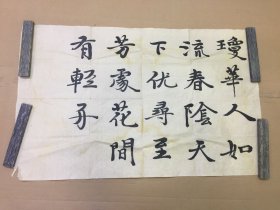 瓊華人如
流春陰天
下优尋至
芳處花間
有輕舟